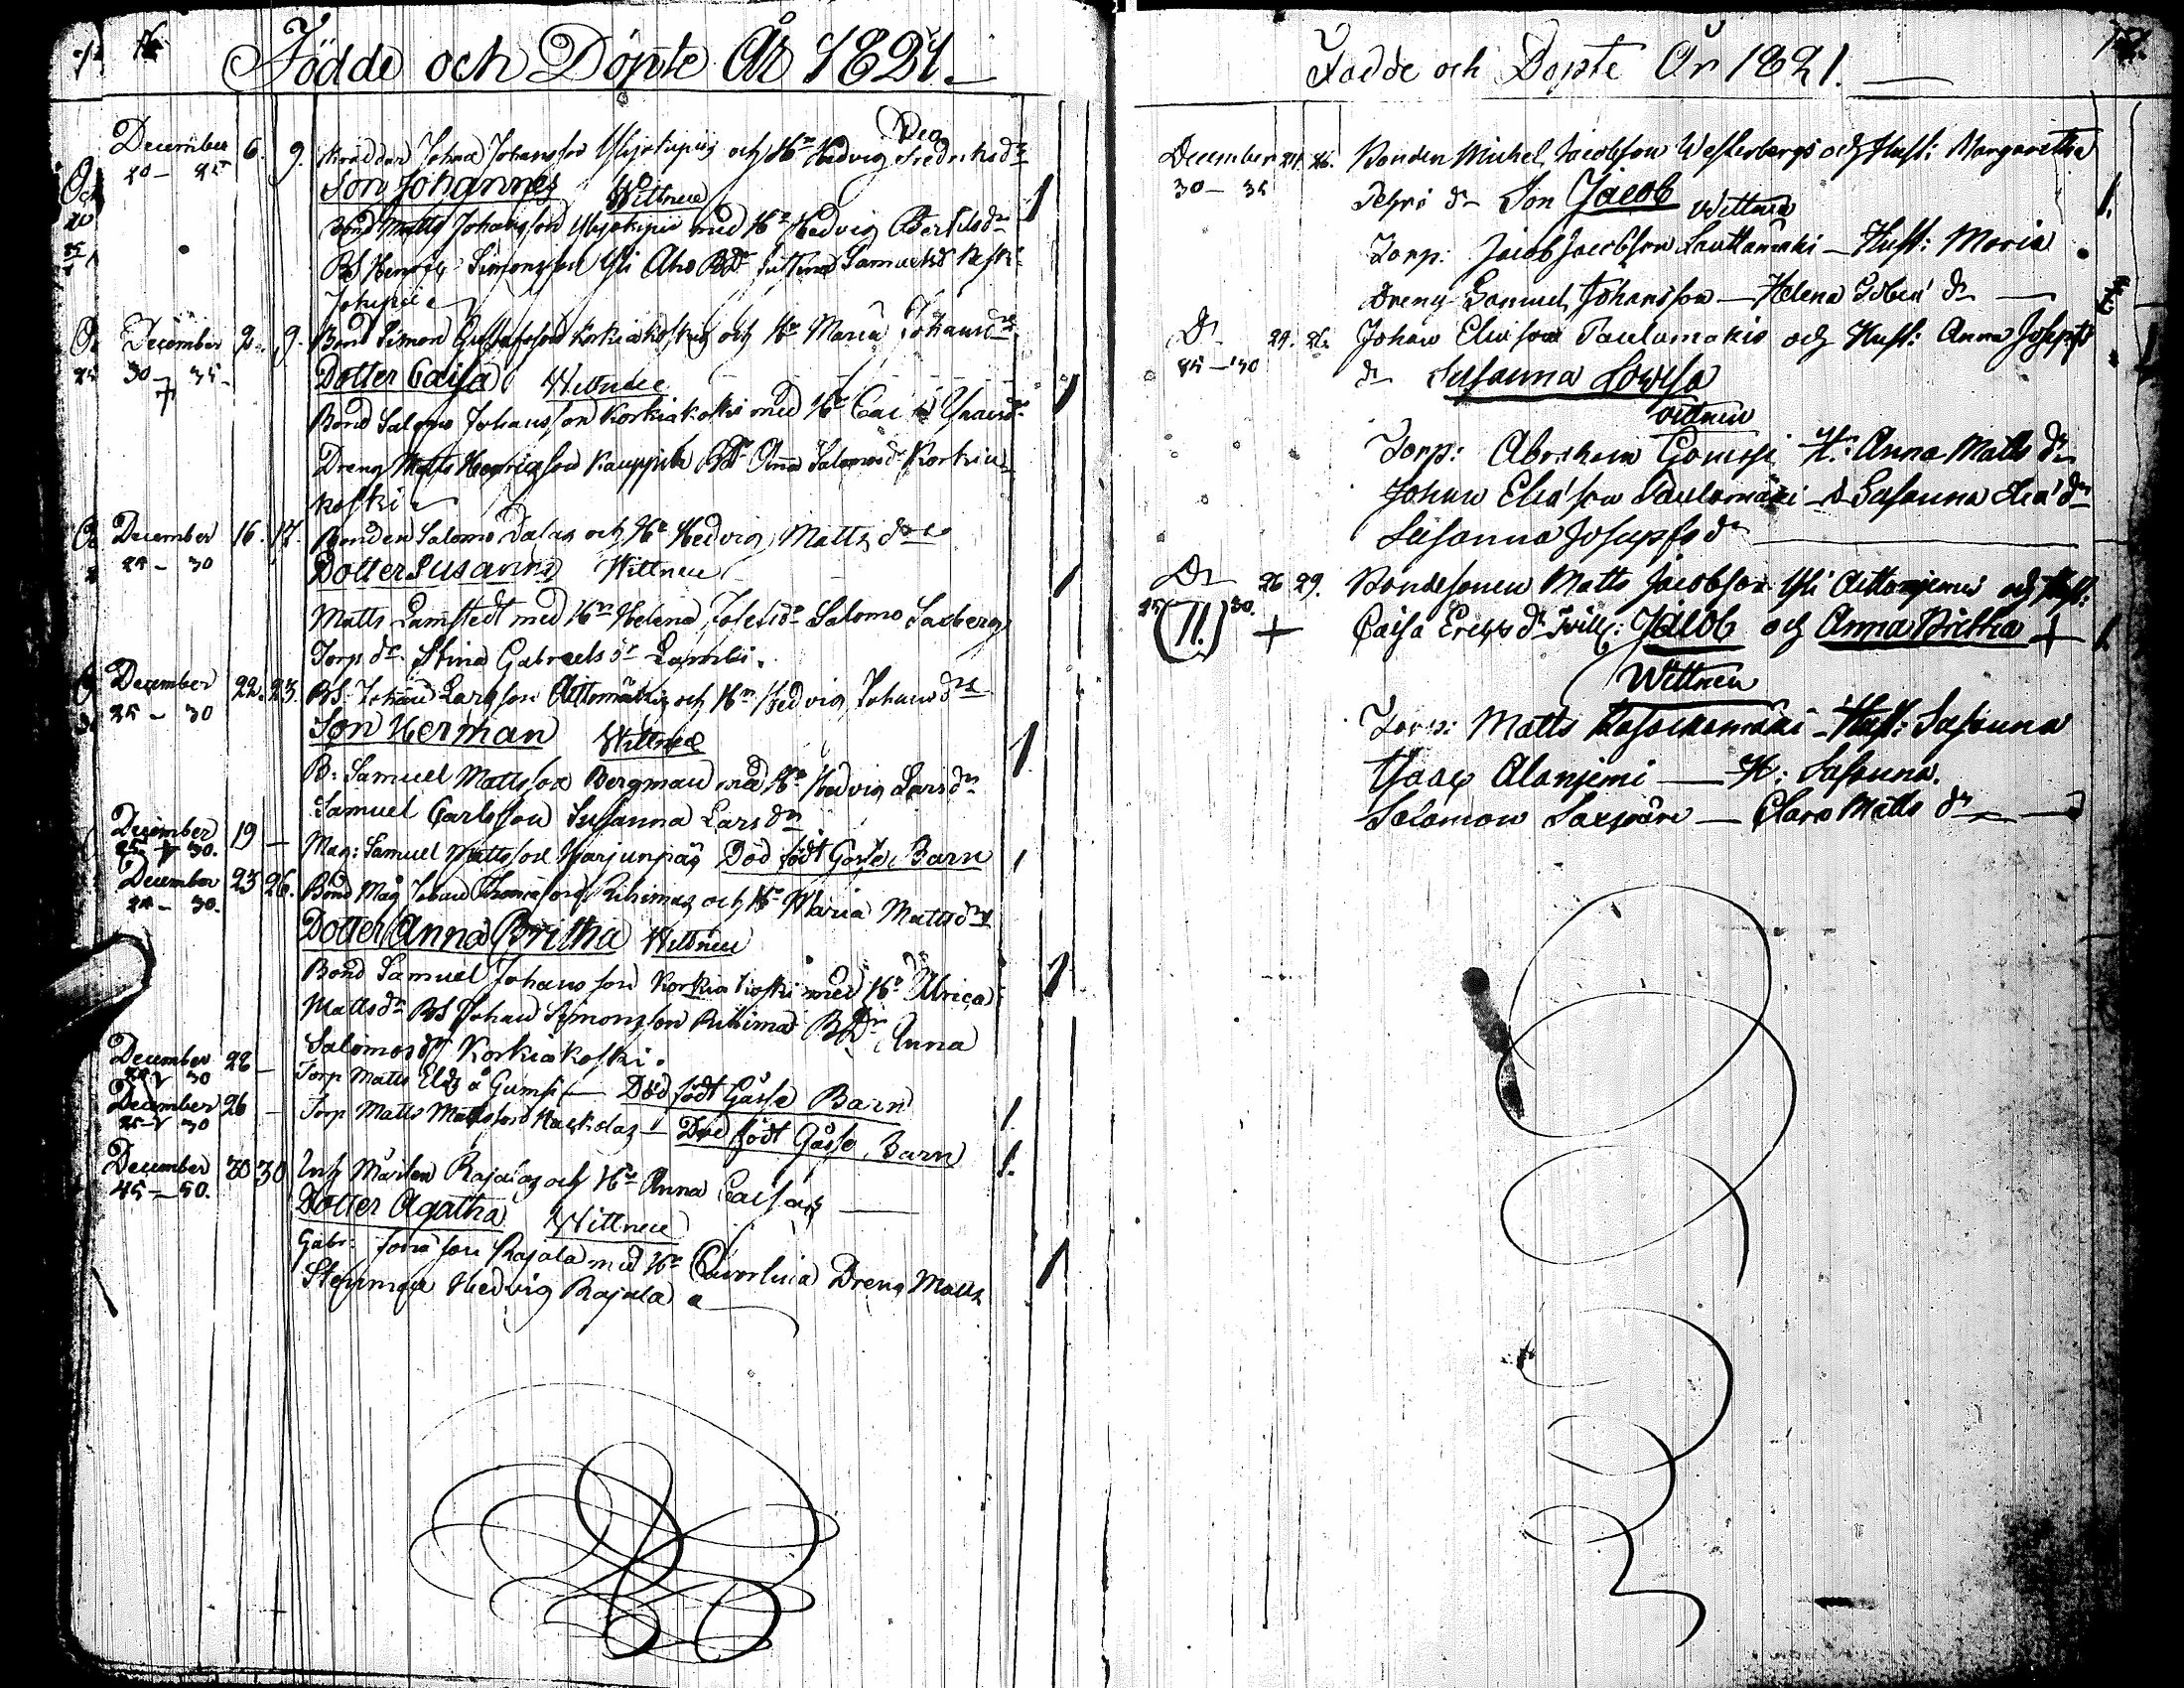 Födde och Döpte År 1821.
December 6. 9. Skräddar Johan Johansson Yliiokipii och Hu Hedvig Fredriksdr
20 — 25 Son Johannes Wittnen
Bond Matts Johansson med Hu Hedvig Bertilsdr
BS Simonsson Yli Aho Bdr Samuelsdr
Jokipii
December 9. Bond Simon Gustafsson Korkiakoski och Hu Maria Johansdr
30 — 35 Dotter Caisa Wittnen
Bond Salomo Johansson Korkiakoski med Hu
Dreng Matts Kauppila Bdr Anna Salomosdr Korkia
koski
December 16. 17. Bonden Salomo och Hu Hedvig Mattsdr
25 — 30 Dotter Susanna Wittnen
Matts Lamstedt med Hu Helena Salomo Saxberg
Torp dr Stina Gabrielsdr Lambi.
December 22. 23. BS. Johan Larsson Aittomäki och Hu Hedvig Johansdr
25 — 30 Son Herman Wittnen
B: Samuel Mattsson Bergman med Hu Hedvig Larsdr
Samuel Carlsson Susanna Larsdr
December 19 — Mag: Samuel Mattsson Harjunpää Död födt Gosse Barn
25 30.
December 23 26. Bond Måg Johan Thomasson Riihimäg och Hu Maria Mattsdr
25 — 30. Dotter Anna Britha Wittnen
Bond Samuel Johansson Korkiakoski med Hu Ulrica
Mattsdr BS Johan Simonsson Riihimäg BDr Anna
Salomosdr Korkiakoski.
December 26 — Torp Matts Gumsi — Död födt Gåsse Barn
30
December 26 — Torp Matts Mattsson — Död födt Gåsse Barn
25 30
December 30 30 Inh Mårten Rajalag och Hu Anna Caisa
45 — 50. Dotter Agatha Wittnen
Gabr: Rajala med Hu Carolina Dreng Matts
Stenman Hedvig Rajala
Födde och Döpte År 1821.
December 24. 26. Bonden Michel Jacobsson Westerbergs och Hust: Margaretha
30 — 35 dr Son Jacob Wittnen
Torp: Jacob Jacobsson Lauttamäki — Hust: Maria
Dreng Samuel Johansson — Helena dr
Dr 24. 26. Johan Eliasson Paulamäkis och Hust: Anna Josephs
25 — 30 dr Susanna Lovisa
Wittnen
Torp: Abraham Gomssi H: Anna Matts dr
Johan Elia'son Paulamäki — Susanna Elia' dr
Susanna Josephs dr
Dr 26 29. Bondesonen Matts Jacobsson Yli Aittoniemi och Hust:
25 (11.) 30. + Caisa Erichs dr Tvill: Jacob och Anna Britha +
Wittnen
Torp: Matts — Hust: Susanna
Isaac Alaniemi — H: Susanna.
Salomon — Clara Matts dr